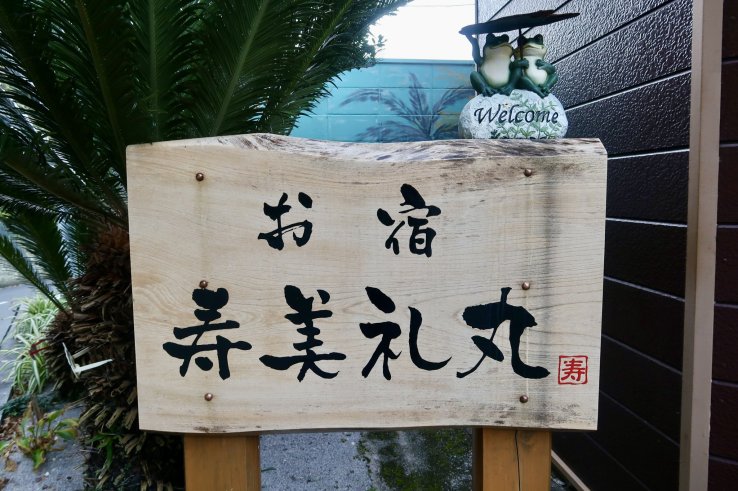 Welcome
お宿
寿美礼丸
寿